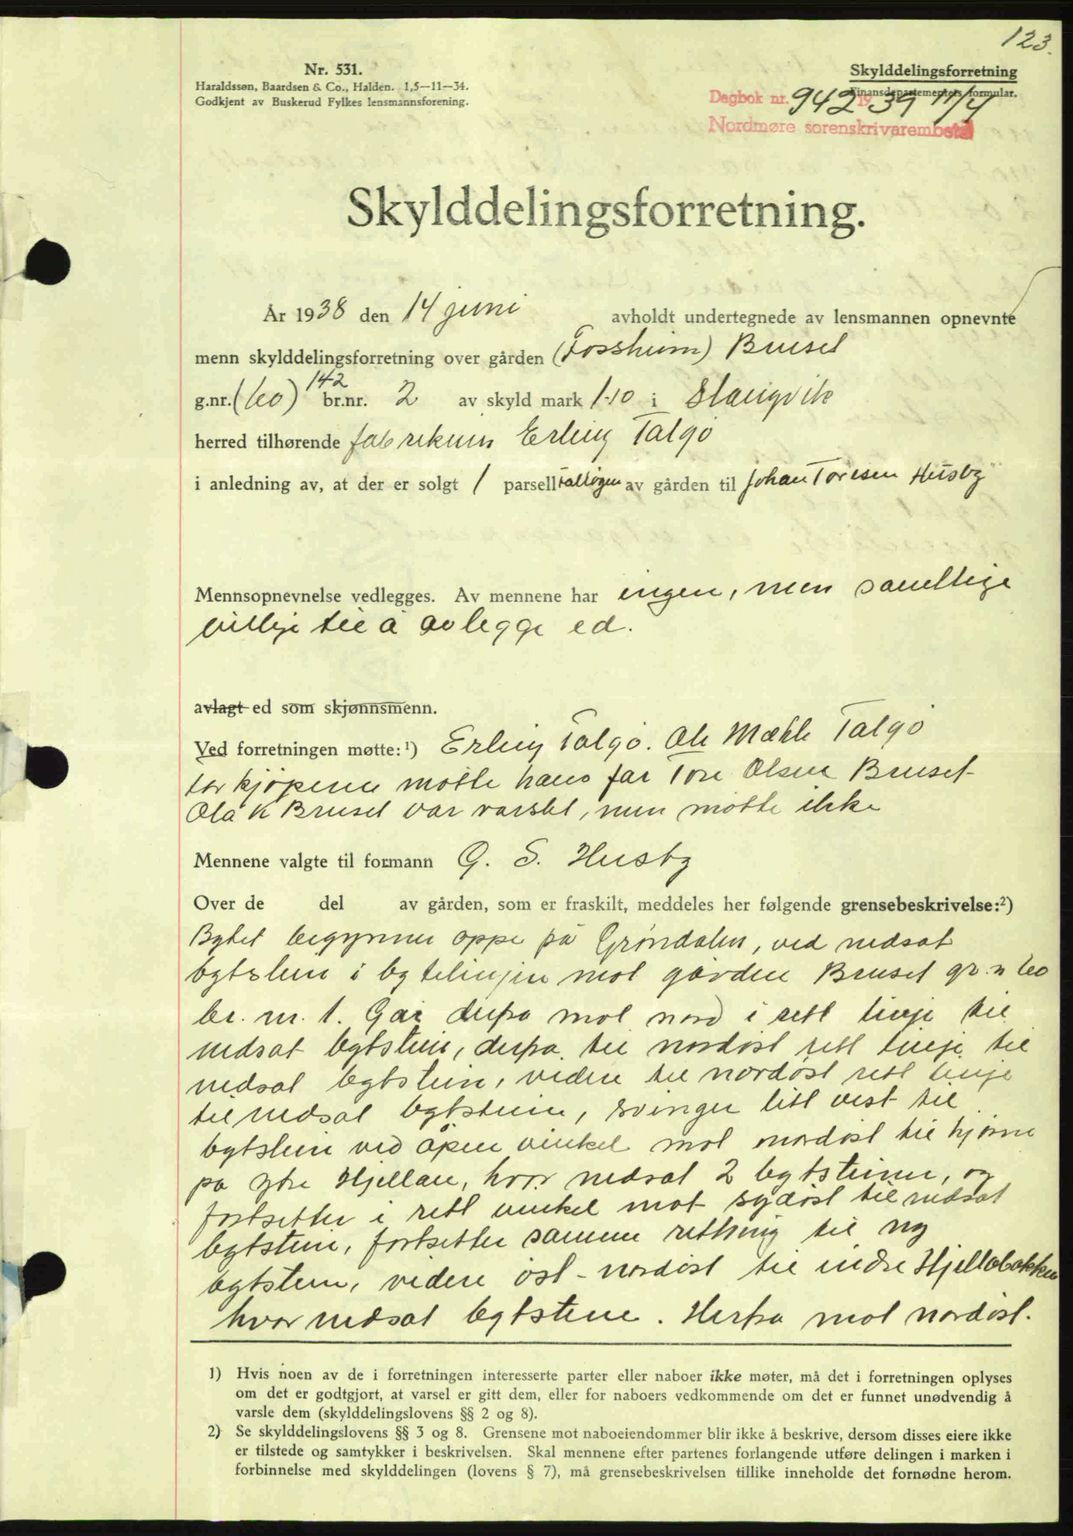 123.
Nr. 531.
Haraldssøn, Baardsen & Co., Halden. 1,5—11—34.
Godkjent av Buskerud Fylkes lensmannsforening.
Skylddelingsforretning
Finansdepartementets formular.
Dagbok nr. 942 19 39 11/4
Nordmøre sorenskrivarembete
Skylddelingsforretning.
År 1938 den 14 juni avholdt undertegnede av lensmannen opnevnte
menn skylddelingsforretning over gården (Fossheim) Bruset
g.nr. (60) 142 br.nr. 2 av skyld mark 1.10 i Stangvik
herred tilhørende Erling Talgø
i anledning av, at der er solgt 1 parsell av gården til Johan Toresen Husby
Mennsopnevnelse vedlegges. Av mennene har ingen, men samtlige
villige til å avlegge ed.
avlagt ed som skjønnsmenn.
Ved forretningen møtte: ¹) Erling Talgø. Ole Mæhle Talgø
for kjøperen møtte hans far Tore Olsen Bruset
Ola K Bruset var varslet, men møtte ikke
Mennene valgte til formann G. S. Husby
Over de del av gården, som er fraskilt, meddeles her følgende grensebeskrivelse: ²)
Bytet begynner oppe på Grøndalen, ved nedsat
bytstein i bytelinjen mot gården Bruset gr. n 60
br. nr. 1. Går derfra mot nord i rett linje til
nedsat bytstein, derfra til nordøst rett linje til
nedsat bytstein, videre til nordøst rett linje
til nedsat bytstein, svinger litt vest til
bytstein ved åpen vinkel mot nordøst til hjørne
på ytre Hjellan, hvor nedsat 2 bytsteiner, og
fortsetter i rett vinkel mot sydøst til nedsat
bytstein, fortsetter samme rettning til ny
bytstein, videre øst-nordøst til indre Hjellebakken
hvor nedsat bytstene. Herfra mot nordøst.
1) Hvis noen av de i forretningen interesserte parter eller naboer ikke møter, må det i forretningen oplyses
om det er godtgjort, at varsel er gitt dem, eller for naboers vedkommende om det er funnet unødvendig å
varsle dem (skylddelingslovens §§ 2 og 8).
2) Se skylddelingslovens §§ 3 og 8. Grensene mot naboeiendommer blir ikke å beskrive, dersom disses eiere ikke
er tilstede og samtykker i beskrivelsen. Skal mennene efter partenes forlangende utføre delingen i marken i
forbinnelse med skylddelingen (lovens § 7), må grensebeskrivelsen tillike inneholde det fornødne herom.